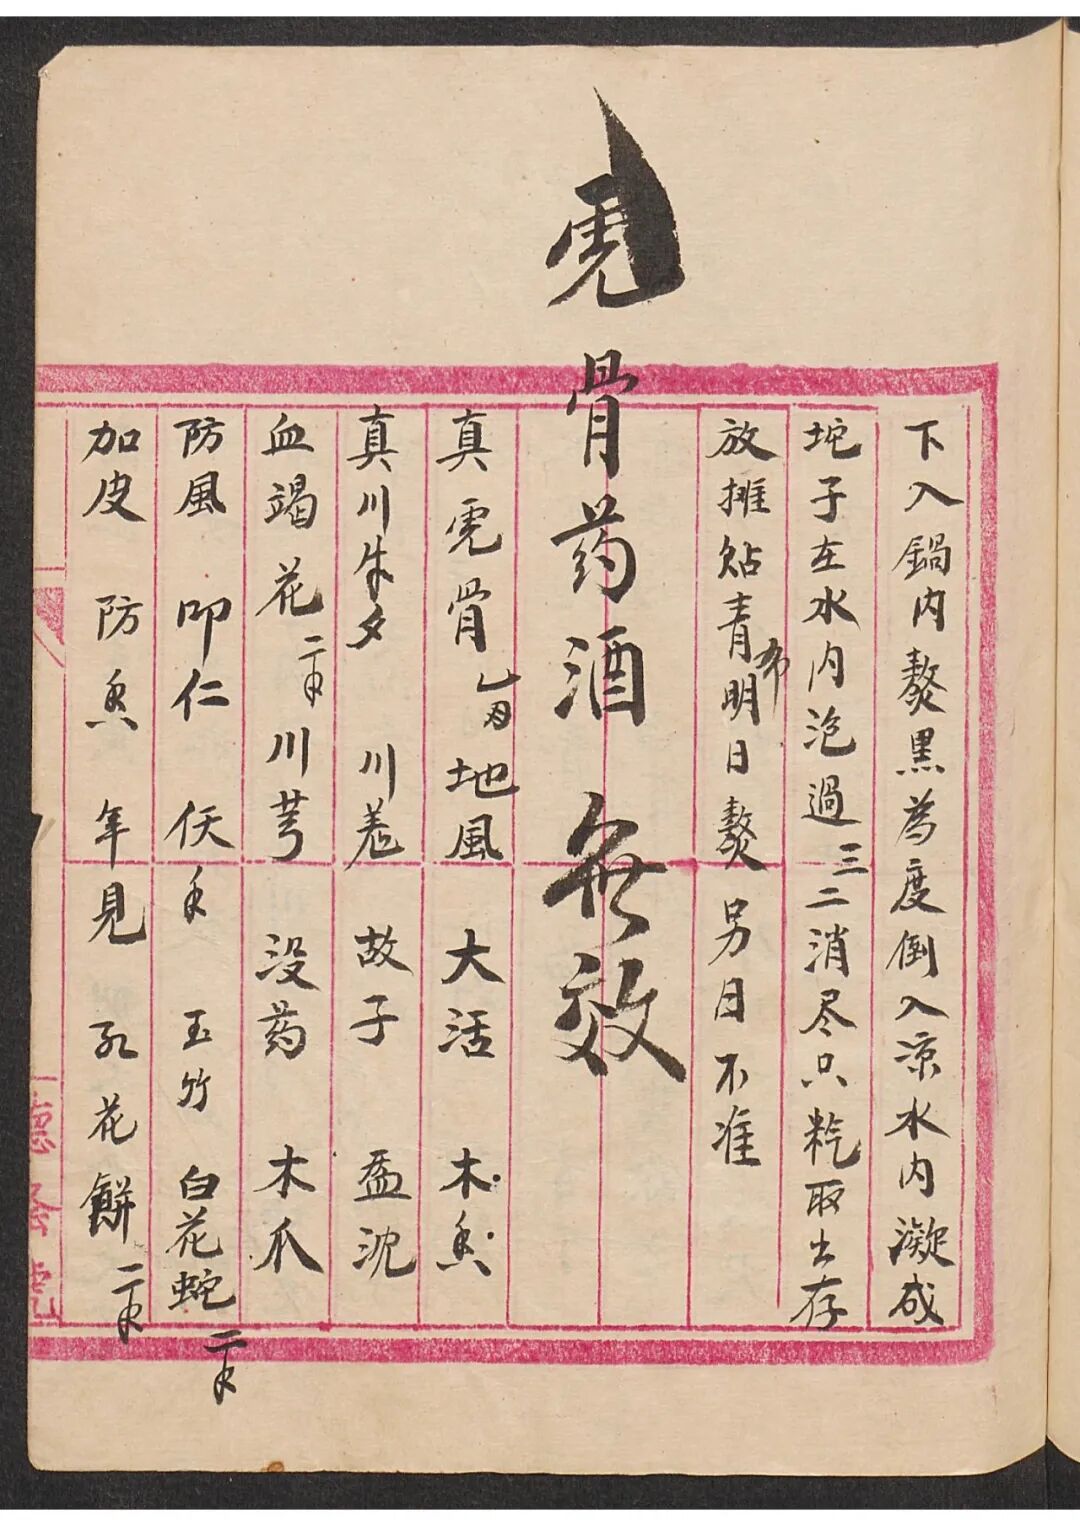 下入鍋内熬黒為度倒入凉水内凝成
坨子在水内泡過三二消尽只粘取出存
放摊贴青布明日熬另日不准
虎骨药酒 無效
真虎骨 地風 大活 木香
真川牛夕 川羌 故子 盔沈
血竭花 二 川芎 没药 木爪
防風 叩仁 伏 玉竹 白花蛇 二
加皮 防 年見 紅花餅 二
德 隆 號